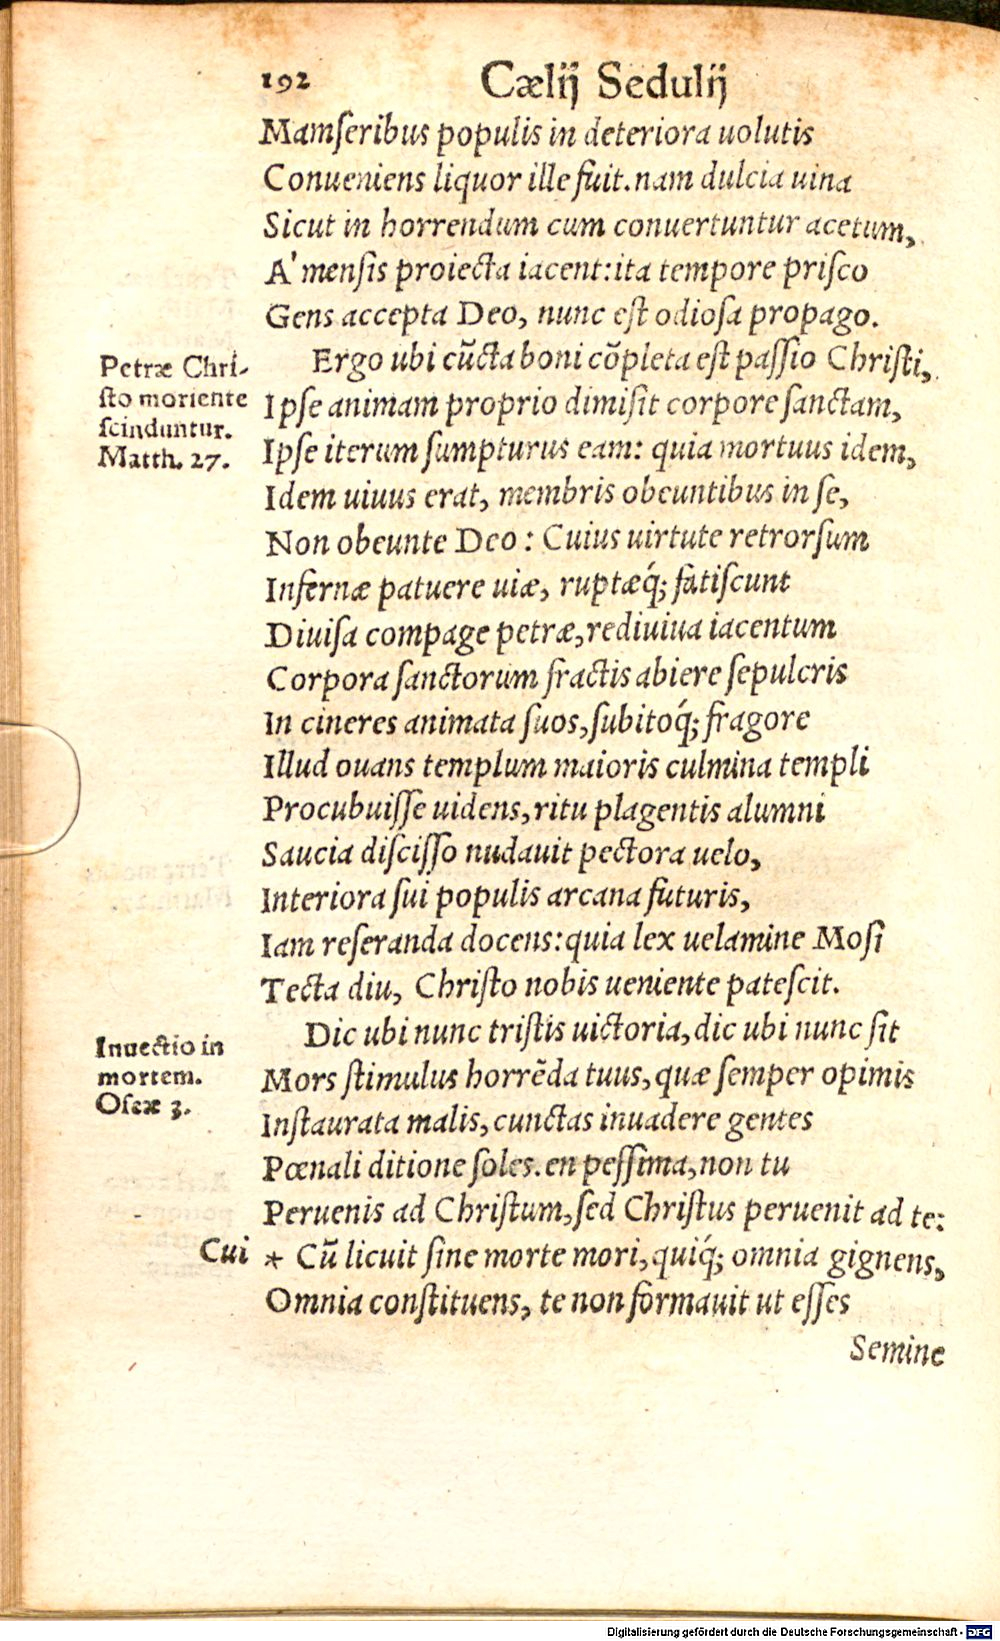 192 Cælij Sedulij
Mamſeribus populis in deteriora uolutis
Conueniens liquor ille fuit. nam dulcia uina
Sicut in horrendum cum conuertuntur acetum,
A' menſis proiecta iacent: ita tempore priſco
Gens accepta Deo, nunc eſt odioſa propago.
Ergo ubi cūcta boni cōpleta eſt paſſio Chriſti,
Petræ Chri-
ſto moriente
ſcinduntur.
Matth. 27.
Ipſe animam proprio dimiſit corpore ſanctam,
Ipſe iterum ſumpturus eam: quia mortuus idem,
Idem uiuus erat, membris obeuntibus in ſe,
Non obeunte Deo: Cuius uirtute retrorſum
Infernæ patuere uiæ, ruptæq́; fatiſcunt
Diuiſa compage petræ, rediuiua iacentum
Corpora ſanctorum fractis abiere ſepulcris
In cineres animata ſuos, ſubitoq́; fragore
Illud ouans templum maioris culmina templi
Procubuiſſe uidens, ritu plagentis alumni
Saucia diſciſſo nudauit pectora uelo,
Interiora ſui populis arcana futuris,
Iam reſeranda docens: quia lex uelamine Moſi
Tecta diu, Chriſto nobis ueniente pateſcit.
Dic ubi nunc triſtis uictoria, dic ubi nunc ſit
Inuectio in
mortem.
Oſeæ 3.
Mors ſtimulus horrēda tuus, quæ ſemper opimis
Inſtaurata malis, cunctas inuadere gentes
Pœnali ditione ſoles. en peſſima, non tu
Peruenis ad Chriſtum, ſed Chriſtus peruenit ad te:
Cui * Cū licuit ſine morte mori, quiq́; omnia gignens,
Omnia conſtituens, te non formauit ut eſſes
Semine
Digitalisierung gefördert durch die Deutsche Forschungsgemeinschaft - DFG